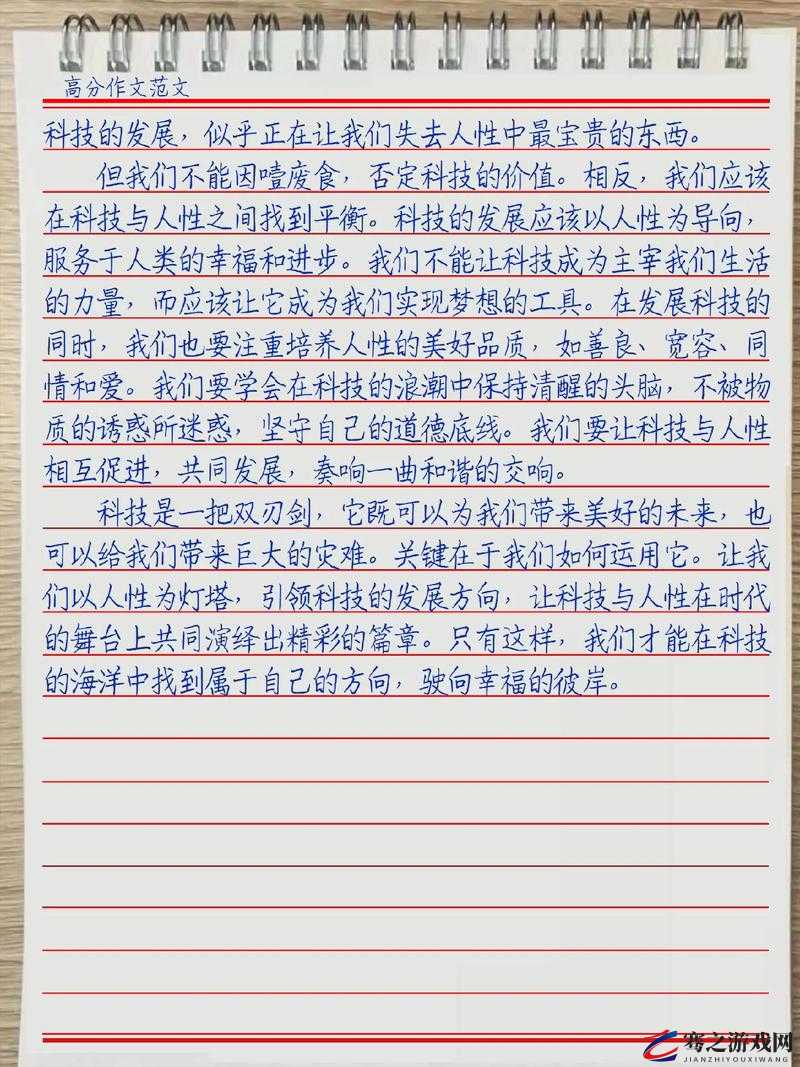 高分作文范文
科技的发展，似乎正在让我们失去人性中最宝贵的东西。
但我们不能因噎废食，否定科技的价值。相反，我们应该
在科技与人性之间找到平衡。科技的发展应该以人性为导向，
服务于人类的幸福和进步。我们不能让科技成为主宰我们生活
的力量，而应该让它成为我们实现梦想的工具。在发展科技的
同时，我们也要注重培养人性的美好品质，如善良、宽容、同
情和爱。我们要学会在科技的浪潮中保持清醒的头脑，不被物
质的诱惑所迷惑，坚守自己的道德底线。我们要让科技与人性
相互促进，共同发展，奏响一曲和谐的交响。
科技是一把双刃剑，它既可以为我们带来美好的未来，也
可以给我们带来巨大的灾难。关键在于我们如何运用它。让我
们以人性为灯塔，引领科技的发展方向，让科技与人性在时代
的舞台上共同演绎出精彩的篇章。只有这样，我们才能在科技
的海洋中找到属于自己的方向，驶向幸福的彼岸。
骞之游戏网
JIANZHIYOUXIWANG